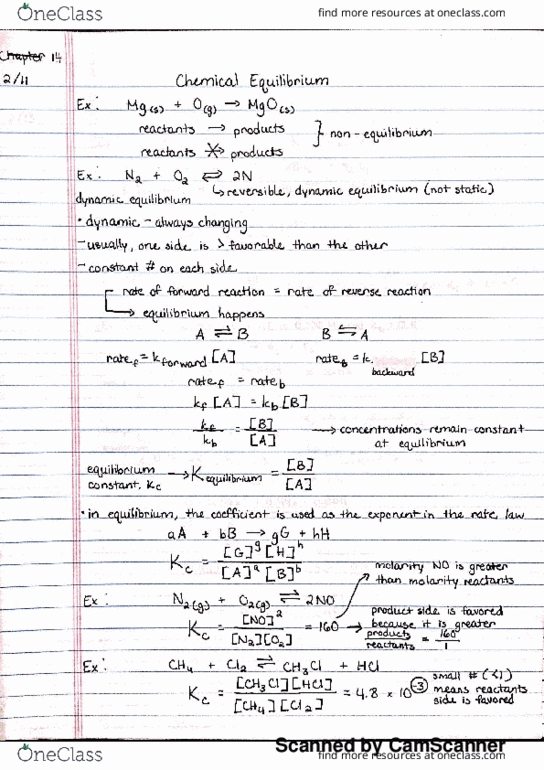 OneClass find more resources at oneclass.com
Chapter 14
2/11 Chemical Equilibrium
Ex: Mg(s) + O(g) → MgO(s)
reactants → products } non-equilibrium
reactants ↛ products
Ex: N₂ + O₂ ⇌ 2N
↳ reversible, dynamic equilibrium (not static)
dynamic equilibrium
• dynamic - always changing
- usually, one side is > favorable than the other
- constant # on each side
rate of forward reaction = rate of reverse reaction
→ equilibrium happens
A ⇌ B B ⇆ A
rate_f = k_forward [A] rate_b = k_backward [B]
rate_f = rate_b
k_f [A] = k_b [B]
k_f/k_b = [B]/[A] → concentrations remain constant
at equilibrium
equilibrium constant, Kc → K_equilibrium = [B]/[A]
• in equilibrium, the coefficient is used as the exponent in the rate law
aA + bB → gG + hH
Kc = [G]^g [H]^h / [A]^a [B]^b
molarity NO is greater
than molarity reactants
Ex: N₂(g) + O₂(g) ⇌ 2NO
Kc = [NO]² / [N₂][O₂] = 160 → product side is favored
because it is greater
products/reactants = 160/1
Ex: CH₄ + Cl₂ ⇌ CH₃Cl + HCl
Kc = [CH₃Cl][HCl] / [CH₄][Cl₂] = 4.8 × 10⁻³ small # (<1)
means reactants
side is favored
Scanned by CamScanner
OneClass find more resources at oneclass.com